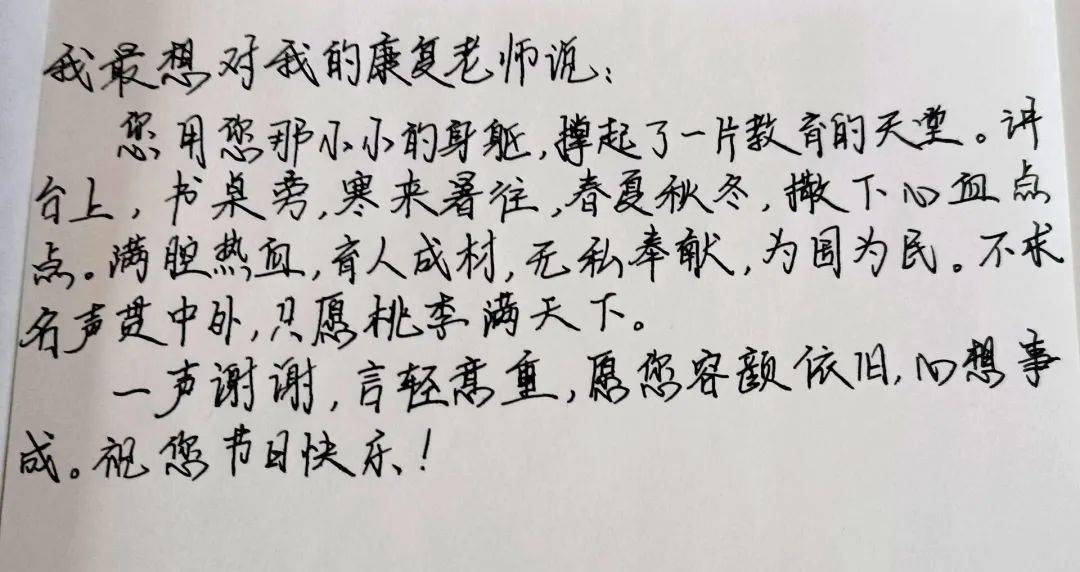 我最想对我的康复老师说:
您用您那小小的身躯,撑起了一片教育的天堂。讲
台上,书桌旁,寒来暑往,春夏秋冬,撒下心血点
点。满腔热血,育人成材,无私奉献,为国为民。不求
名声贯中外,只愿桃李满天下。
一声谢谢,言轻意重,愿您容颜依旧,心想事
成。祝您节日快乐!